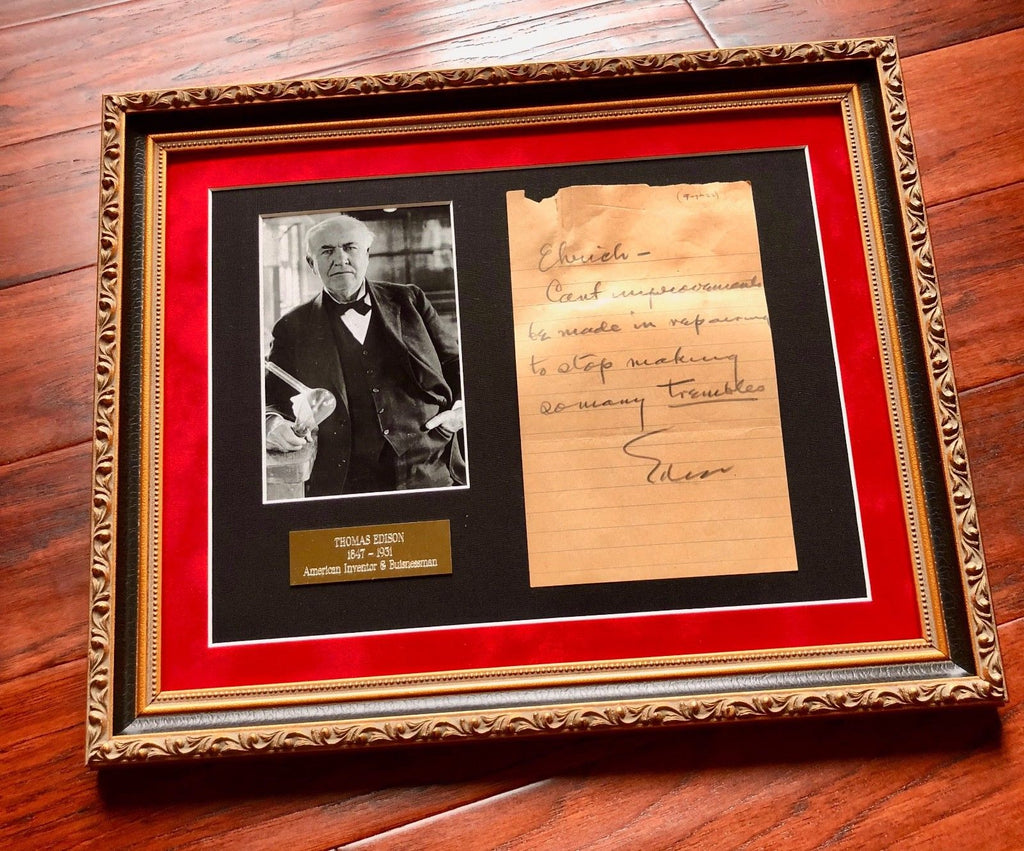 THOMAS EDISON
1847 – 1931
American Inventor & Buisnessman
Ehrich –
Cant improvements
be made in repairing
to stop making
so many trembles
Edison